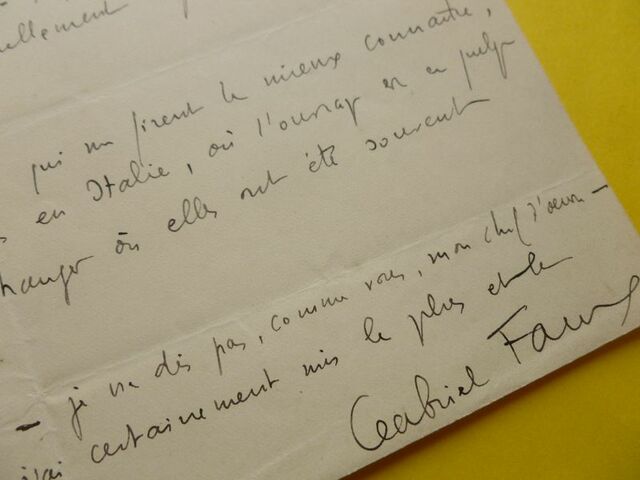 ellement
qui me firent le mieux connaître,
en Italie, où l'ouvrage en a
hanger où elles ont été souvent
– je ne dis pas, comme vous, mon chef d'œuvre –
j'ai certainement mis le plus
Gabriel Faure